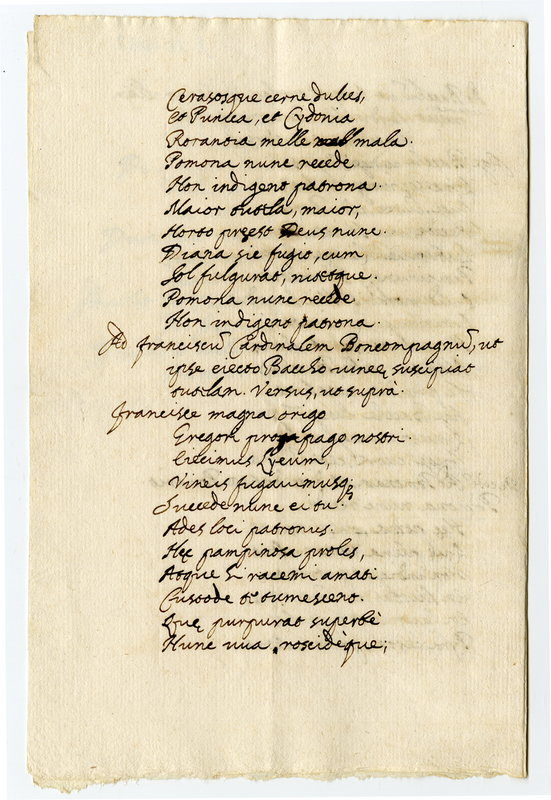 Cerasosque cerne dulces,
Et Punica, et Cydonia
Rorantia melle mala.
Pomona nunc recede
Non indigent patrona.
Maior tutela, maior,
Horto preest Deus nunc.
Diana sic fugit, cum
Sol fulgurat, nitetque.
Pomona nunc recede
Non indigent patrona.
Ad franciscū Cardinalem Boncompagnū, ut
ipse eiecto Baccho vineę suscipiat
tutelam. Versus, ut suprà.
francisce magna origo
Gregori propago nostri.
Eiecimus Lyeum,
Vineis fugauimusq;
Succede nunc ei tu.
Ades loci patronus.
Hęc pampinosa proles,
Atque hi racemi amati
Custode te tumescent.
Quę purpurat superbè
Hunc uua, roscidèque;